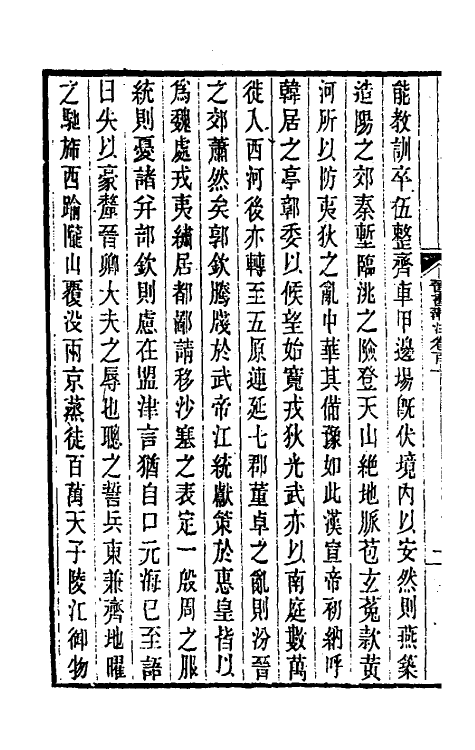 能教訓卒伍整齊車甲邊場旣伏境內以安然則燕築
造陽之郊秦塹臨洮之險登天山絕地脈苞玄菟款黃
河所以防夷狄之亂中華其備豫如此漢宣帝初納呼
韓居之亭鄣委以候望始寬戎狄光武亦以南庭數萬
徙入西河後亦轉至五原連延七郡董卓之亂則汾晉
之郊蕭然矣郭欽騰牋於武帝江統獻策於惠皇皆以
爲魏處戎夷繡居都鄙請移沙塞之表定一殷周之服
統則憂諸并部欽則慮在盟津言猶自口元海已至語
曰失以豪釐晉卿大夫之辱也聰之誓兵東兼齊地曜
之馳旆西踰隴山覆沒兩京蒸徒百萬天子陵江御物